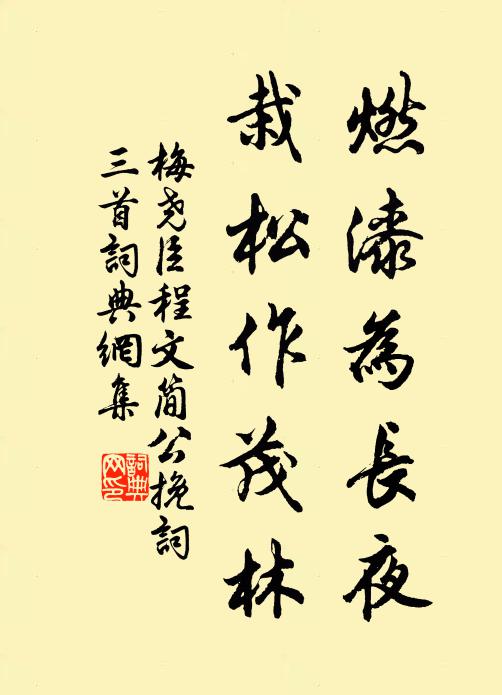 燃漆為長夜
栽松作茂林
梅堯臣程文簡公挽詞
三首詞典網集
詞典網印